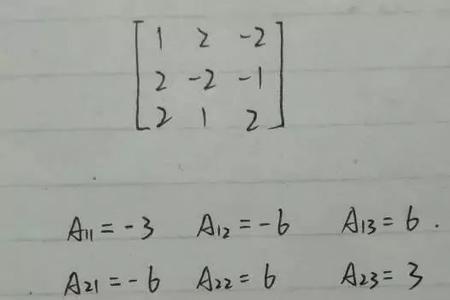 1 2 -2
2 -2 -1
2 1 2
A11 = -3 A12 = -6 A13 = 6 .
A21 = -6 A22 = 6 A23 = 3